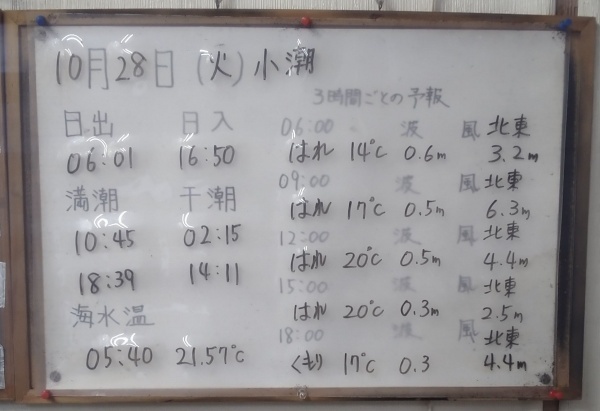 10月28日(火)小潮
3時間ごとの予報
日出 日入
06:01 16:50
満潮 干潮
10:45 02:15
18:39 14:11
海水温
05:40 21.57℃
06:00 波 風 北東
はれ 14℃ 0.6m 3.2m
09:00 波 風 北東
はれ 17℃ 0.5m 6.3m
12:00 波 風 北東
はれ 20℃ 0.5m 4.4m
15:00 波 風 北東
はれ 20℃ 0.3m 2.5m
18:00 波 風 北東
くもり 17℃ 0.3 4.4m